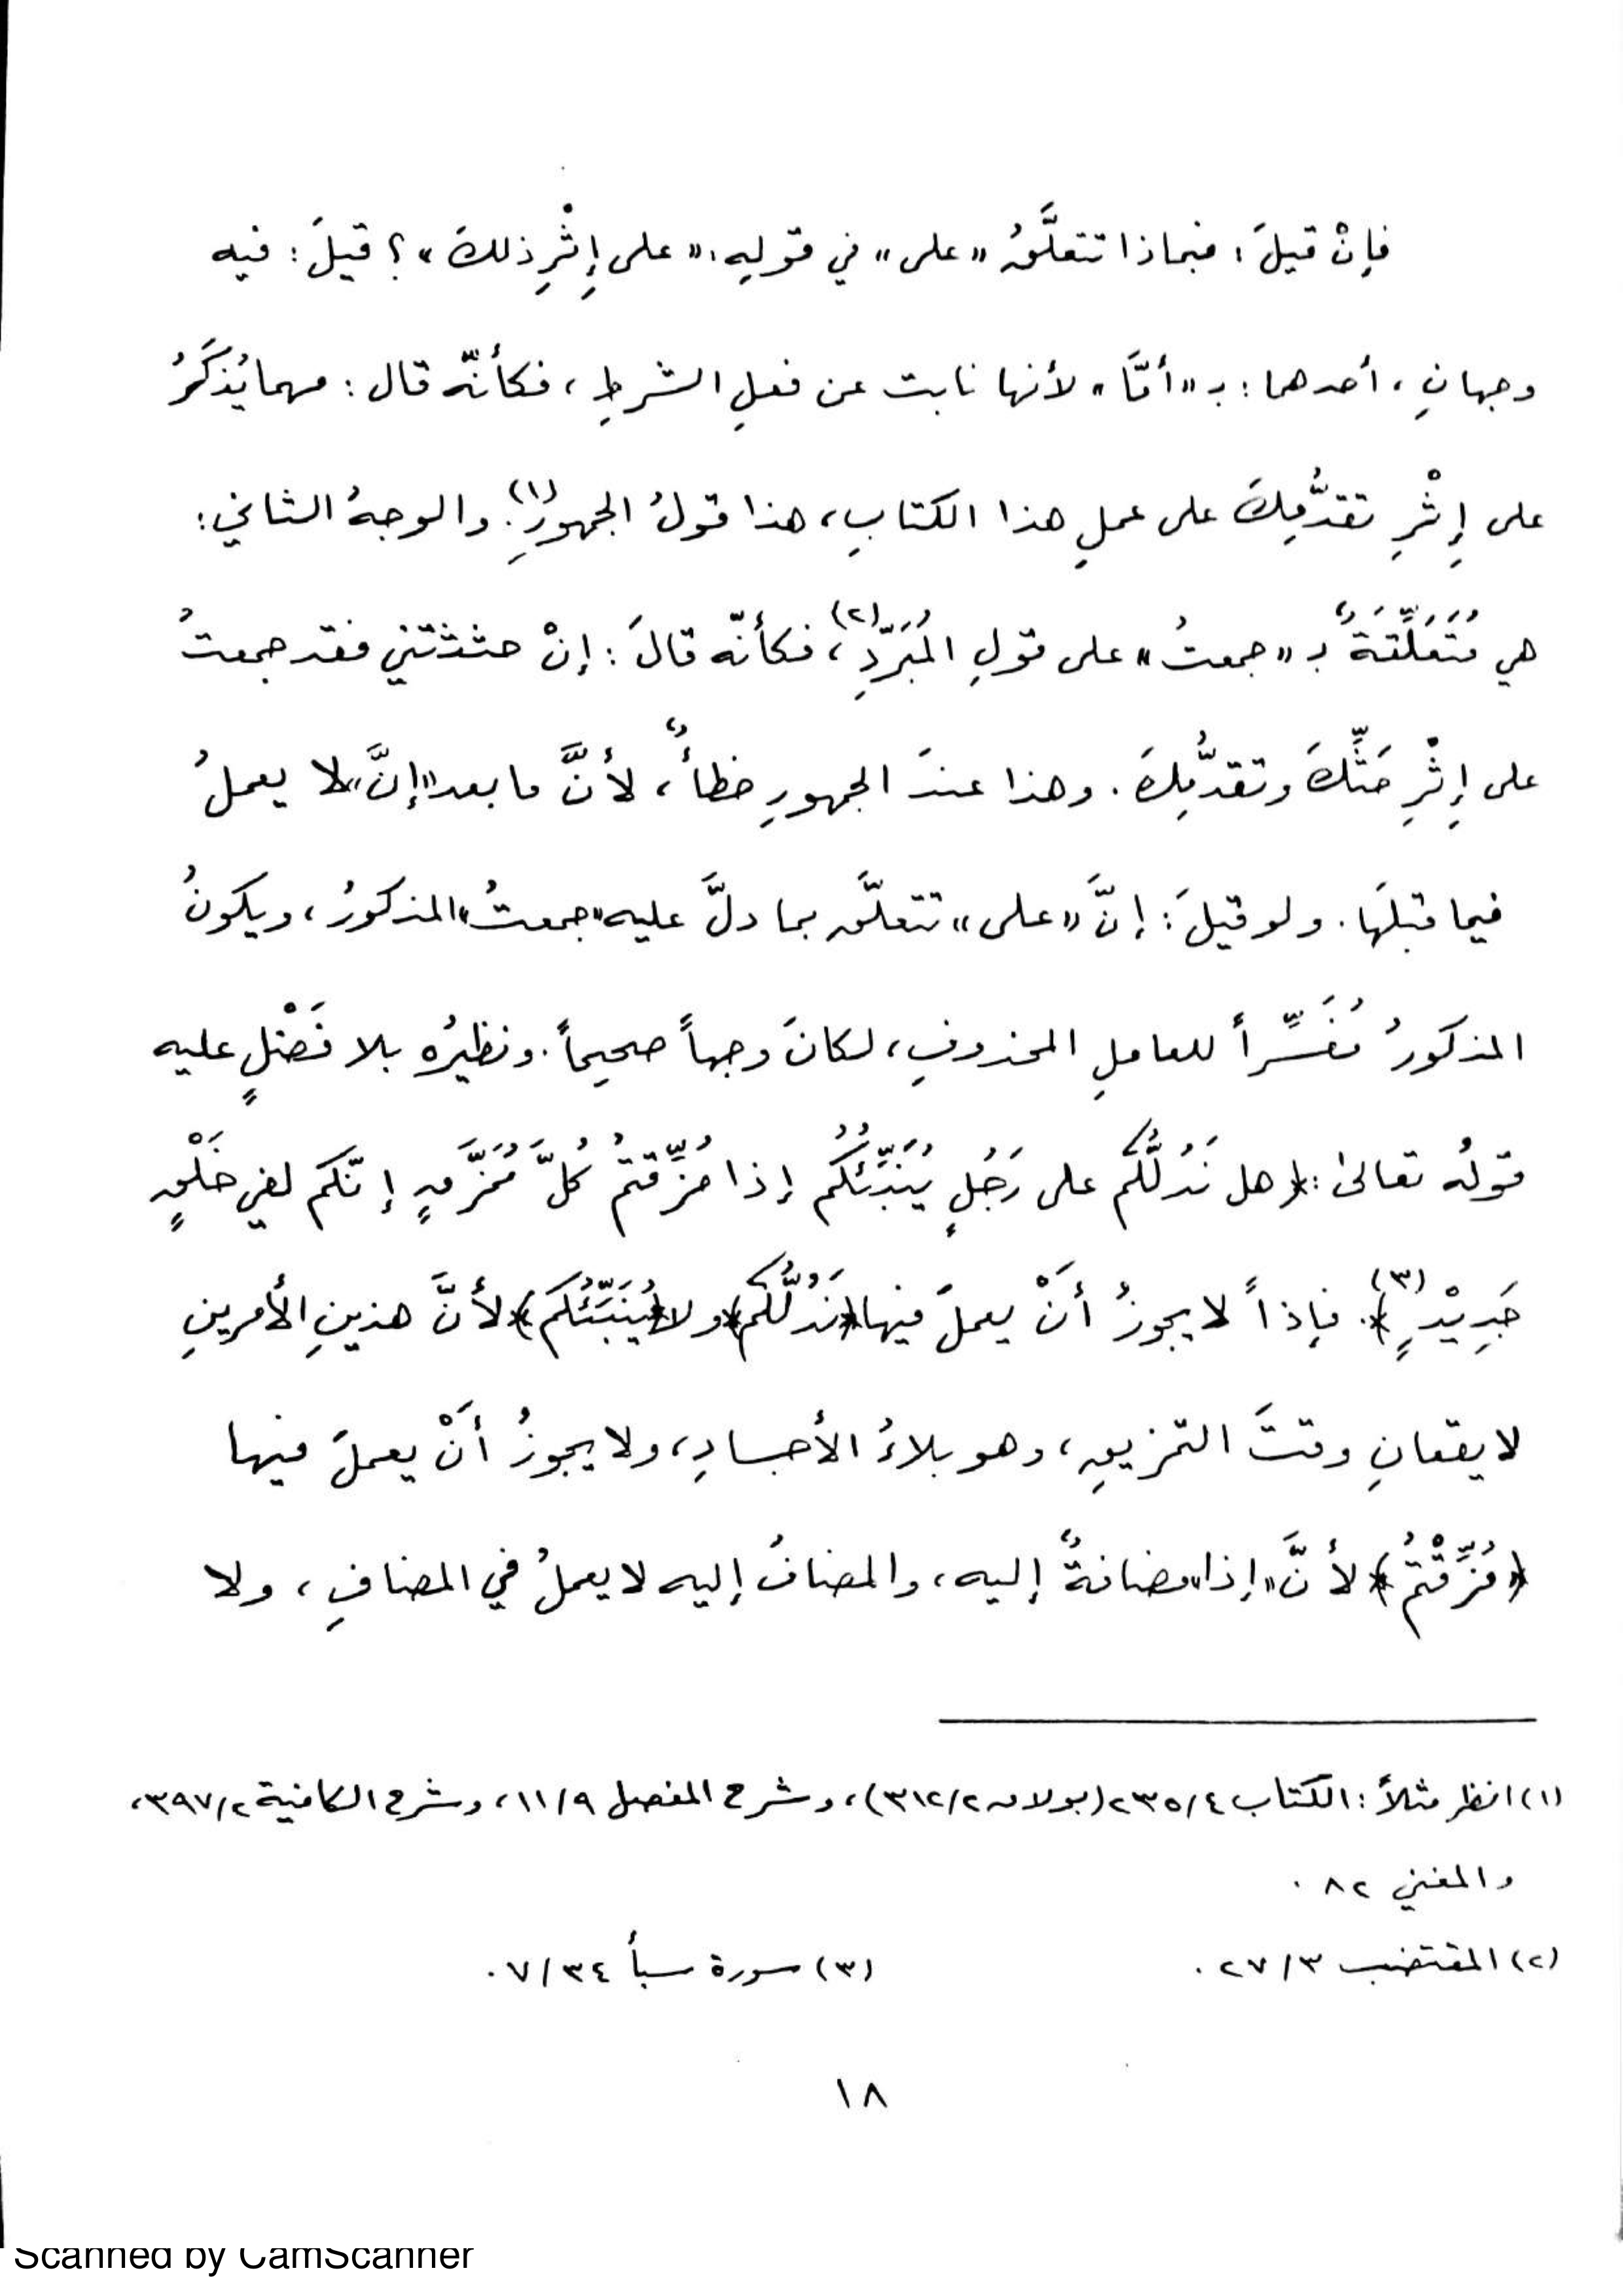 فإنْ قيلَ: فبماذا تتعلَّقُ «على» في قولِهِ: «على إِثْرِ ذلكَ»؟ قيلَ: فيه
وجهانِ، أحدهما: بـ «أمَّا» لأنها نابت عن فعلِ الشرطِ، فكأنّه قال: مهما يُذكَرُ
على إِثْرِ تقدُّمِكَ على عملِ هذا الكتابِ، هذا قولُ الجمهورِ(١). والوجهُ الثاني:
هي مُتَعَلِّقةٌ بـ «جمعتُ» على قولِ المُبَرِّدِ(٢)، فكأنّه قالَ: إنْ حثثتني فقد جمعتُ
على إِثْرِ حَثِّكَ وتقدُّمِكَ. وهذا عندَ الجمهورِ خطأٌ، لأنَّ ما بعد «إنَّ» لا يعملُ
فيما قبلَها. ولو قيلَ: إنَّ «على» تتعلَّق بما دلَّ عليه «جمعتُ» المذكورُ، ويكونُ
المذكورُ مُفَسِّراً للعاملِ المحذوفِ، لكانَ وجهاً صحيحاً. ونظيرُه بلا فَضْلٍ عليه
قولُه تعالىٰ: ﴿هل نَدُلُّكُم على رَجُلٍ يُنَبِّئُكُم إذا مُزِّقتمُ كُلَّ مُمَزَّقٍ إنّكم لفي خَلْقٍ
جَدِيْدٍ(٣)﴾. فإذاً لا يجوزُ أنْ يعملَ فيها ﴿نَدُلُّكُم﴾ ولا ﴿يُنَبِّئُكُم﴾ لأنَّ هذينِ الأمرينِ
لا يقعانِ وقتَ التمزيقِ، وهو بلاءُ الأجسادِ، ولا يجوزُ أنْ يعملَ فيها
﴿مُزِّقْتُمُ﴾ لأنَّ «إذا» مضافةٌ إليه، والمضافُ إليه لا يعملُ في المضافِ، ولا
(١) انظر مثلاً: الكتاب ٢٣٥/٤ (بولاق ٣١٢/٢)، وشرح المفصل ١١/٩، وشرح الكافية ٣٩٧/٢،
والمغني ٨٢.
(٢) المقتضب ٢٧/٣. (٣) سورة سبأ ٧/٣٤.
١٨
Scanned by CamScanner